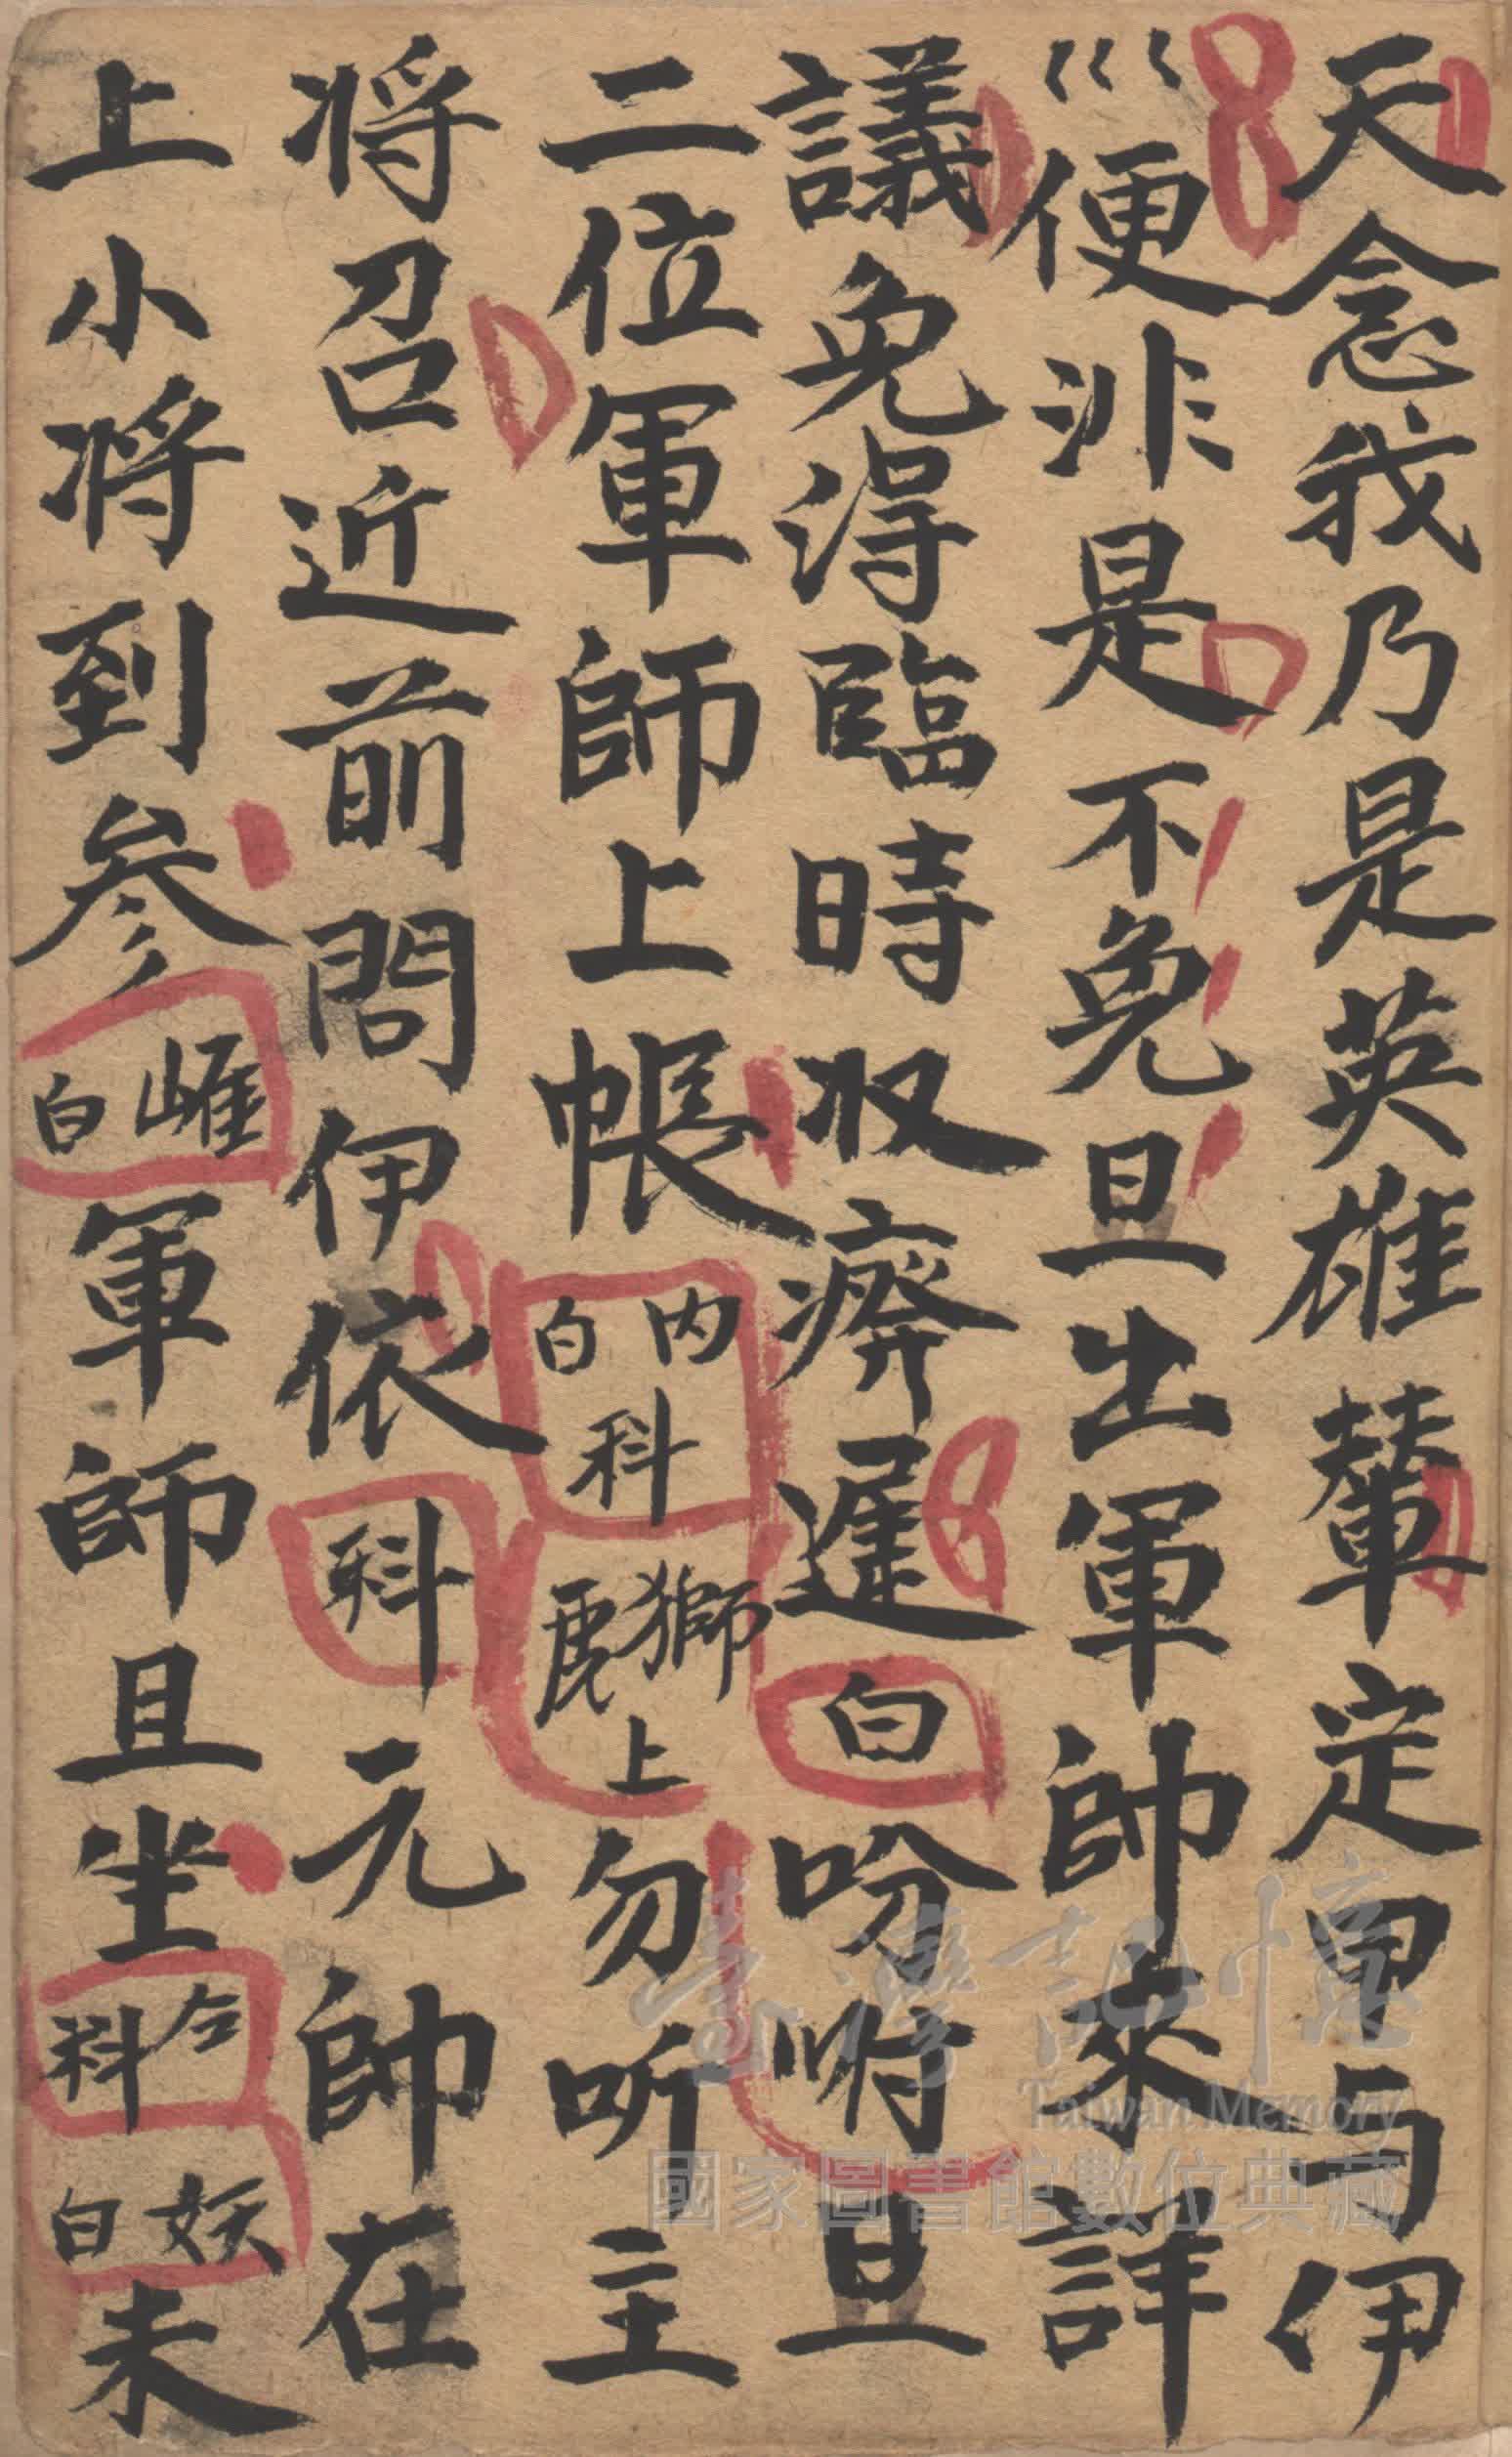 天念我乃是英雄輦定甲与伊
巛便非是不免旦出軍帥來詳
議免淂臨時収癠遲白吩咐旦
二位軍師上帳内白科獅虎上勿听主
将召近前問伊依科元帥在
上小将到参雎白軍師且坐仝科妖白未
臺灣記憶
Taiwan Memory
國家圖書館數位典藏